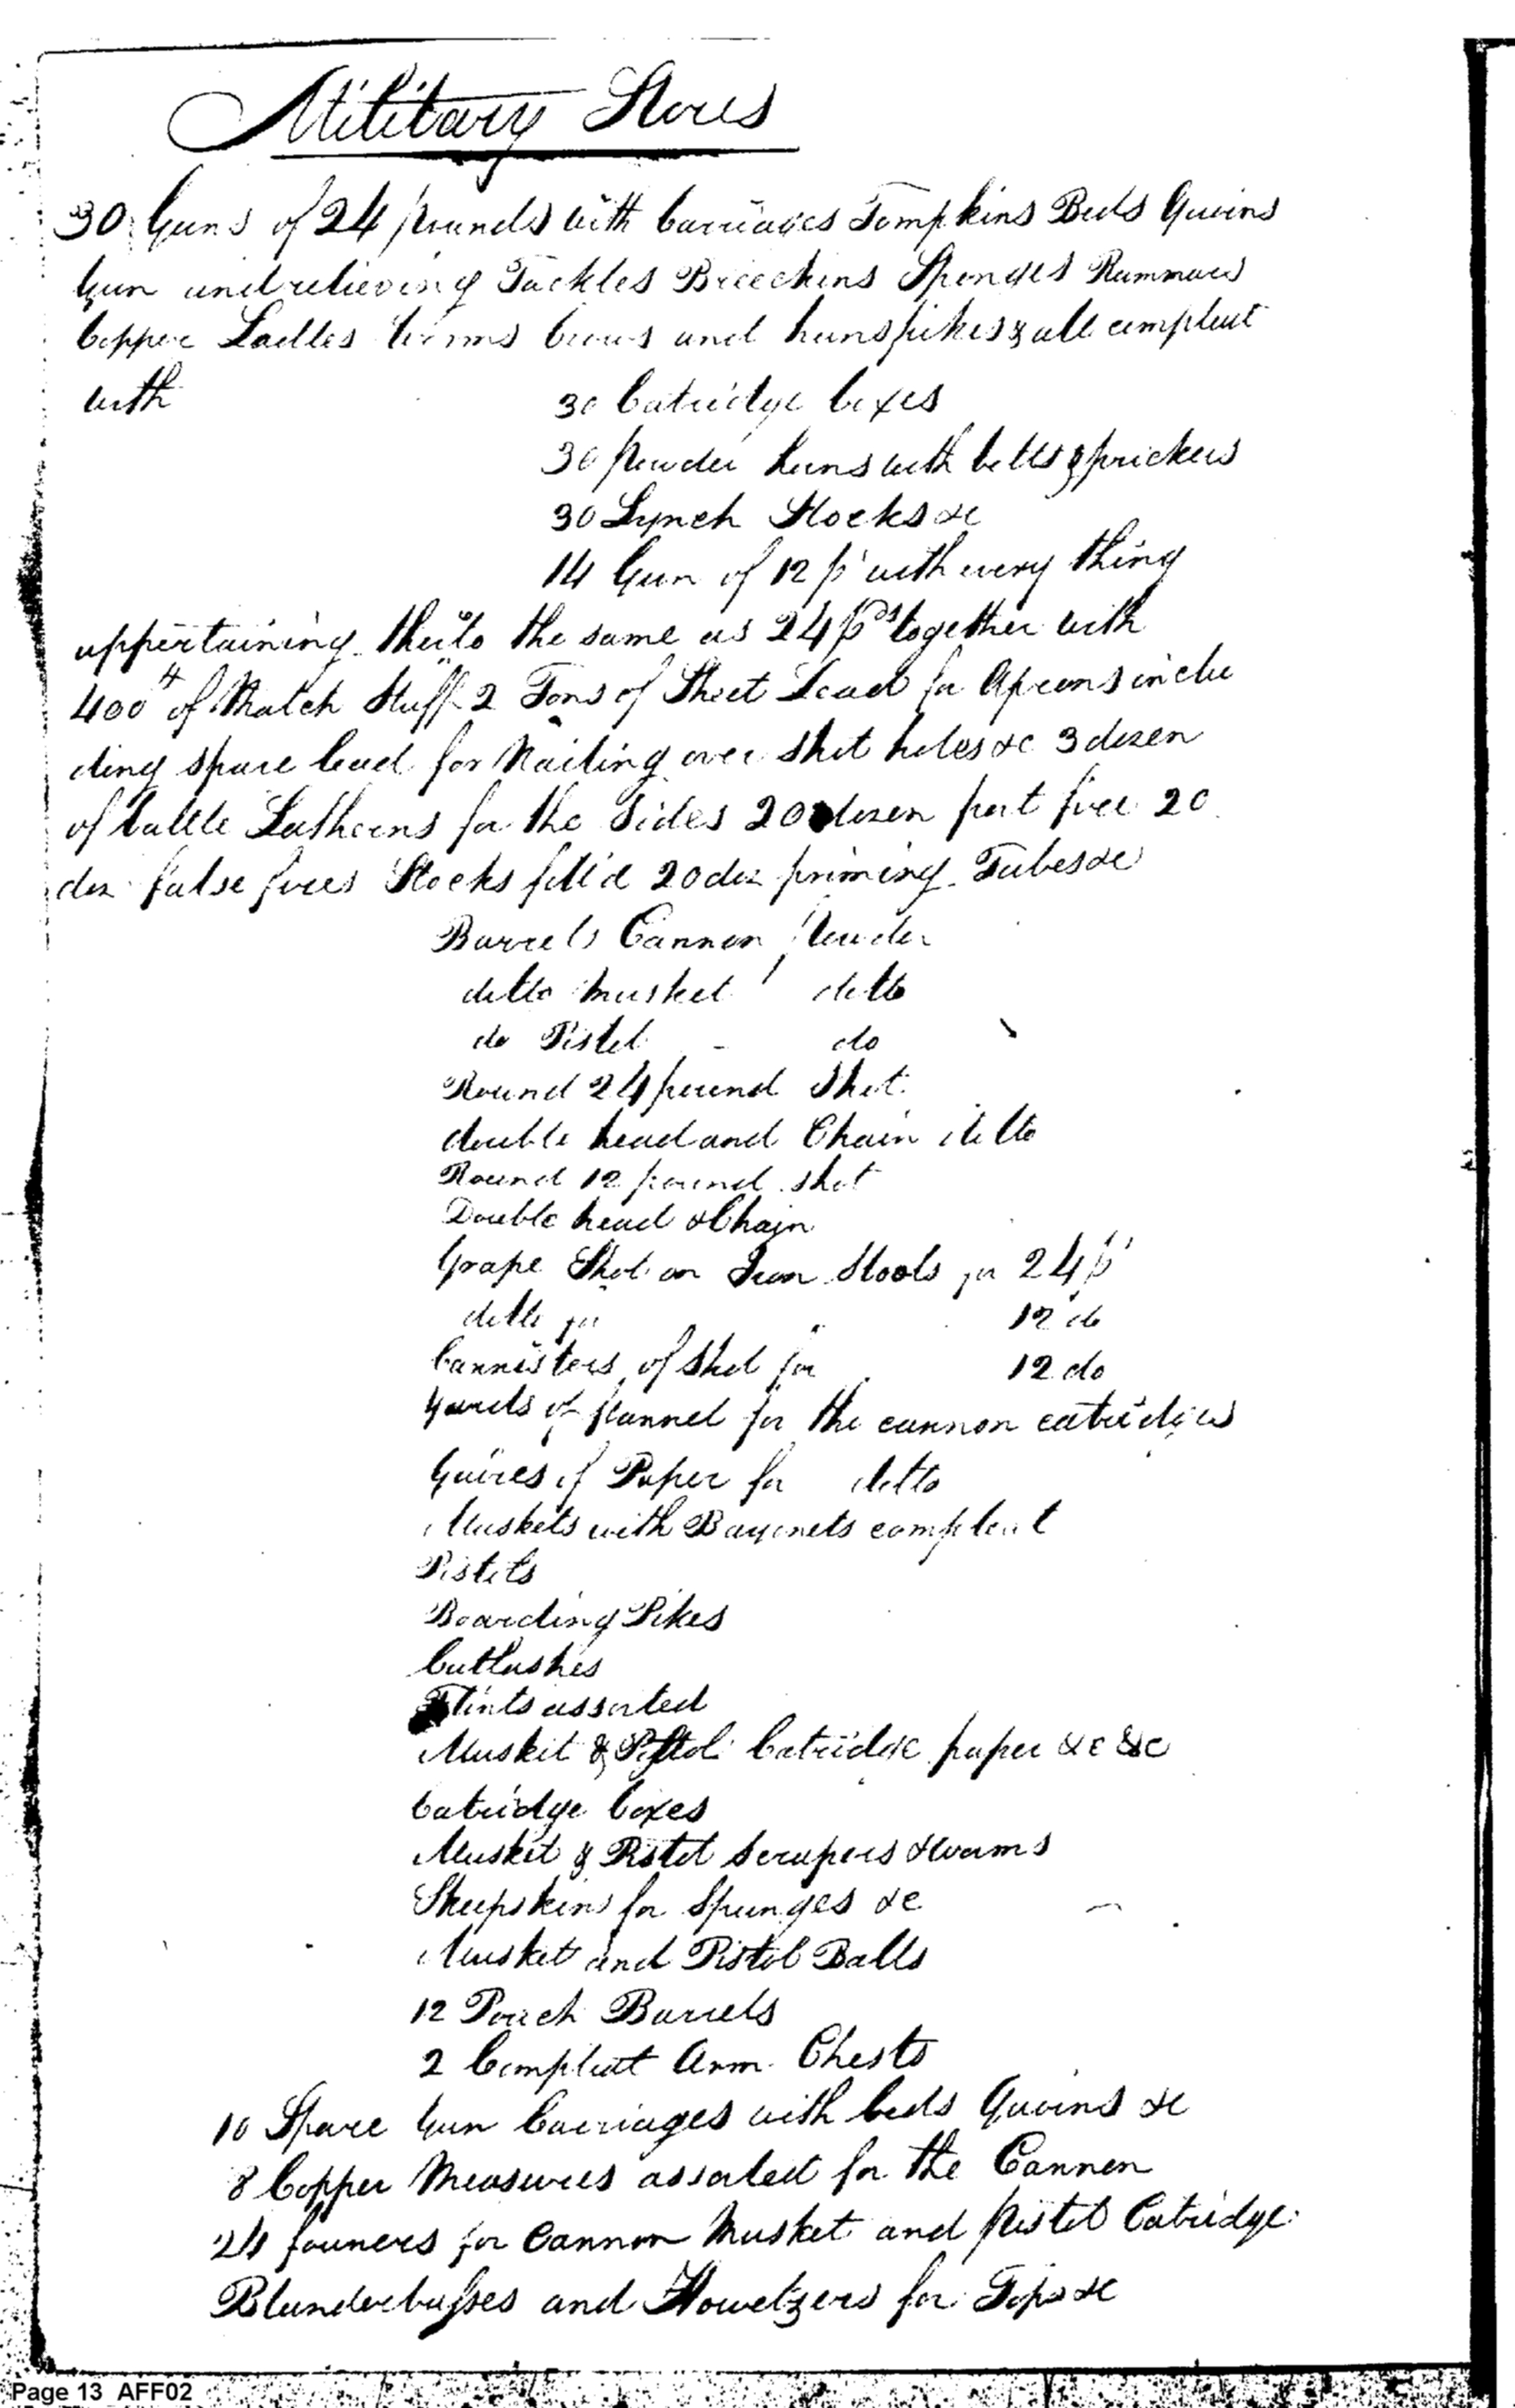 Military Stores
30 Guns of 24 pounds with Carriages Tompkins Beds Quoins
Gun and relieving Tackles Breechins Sponges Rammers
Copper Ladles Worms Crows and hanspikes & all compleat
with
30 Catridge boxes
30 powder horns with belts & prickers
30 Lynch Stocks &c
14 Gun of 12 p with every thing
appertaining theirto the same as 24 pds together with
400 # of Match Stuff 2 Tons of Sheet Lead for Aprons inclu
ding spare lead for Nailing over shot holes &c 3 dozen
of battle Latherns for the Sides 20 dozen port fire 20
doz false fires Stocks fill'd 20 doz priming Tubes &c
Barrels Cannon powder
ditto musket ditto
do Pistol - do
Round 24 pound Shot
double head and Chain ditto
Round 12 pound shot
Double head & Chain
Grape Shot on Iron Stools for 24 p
ditto for 12 do
Cannisters of Shot for 12 do
yards of flannel for the cannon catridges
Quires of Paper for ditto
Muskets with Bayonets compleat
Pistols
Boarding Pikes
Cutlashes
Flints assorted
Muskit & Pistol Catridge paper &c &c
Catridge boxes
Muskit & Pistol Scrapers & worms
Sheepskins for Spunges &c
Musket and Pistol Balls
12 Pouch Barrels
2 Compleat Arm Chests
10 Spare Gun Carriages with beds Quoins &c
8 Copper Measures assorted for the Cannon
24 formers for Cannon Musket and Pistol Catridge
Blunderbusses and Howetzers for Tops &c
Page 13 AFF02